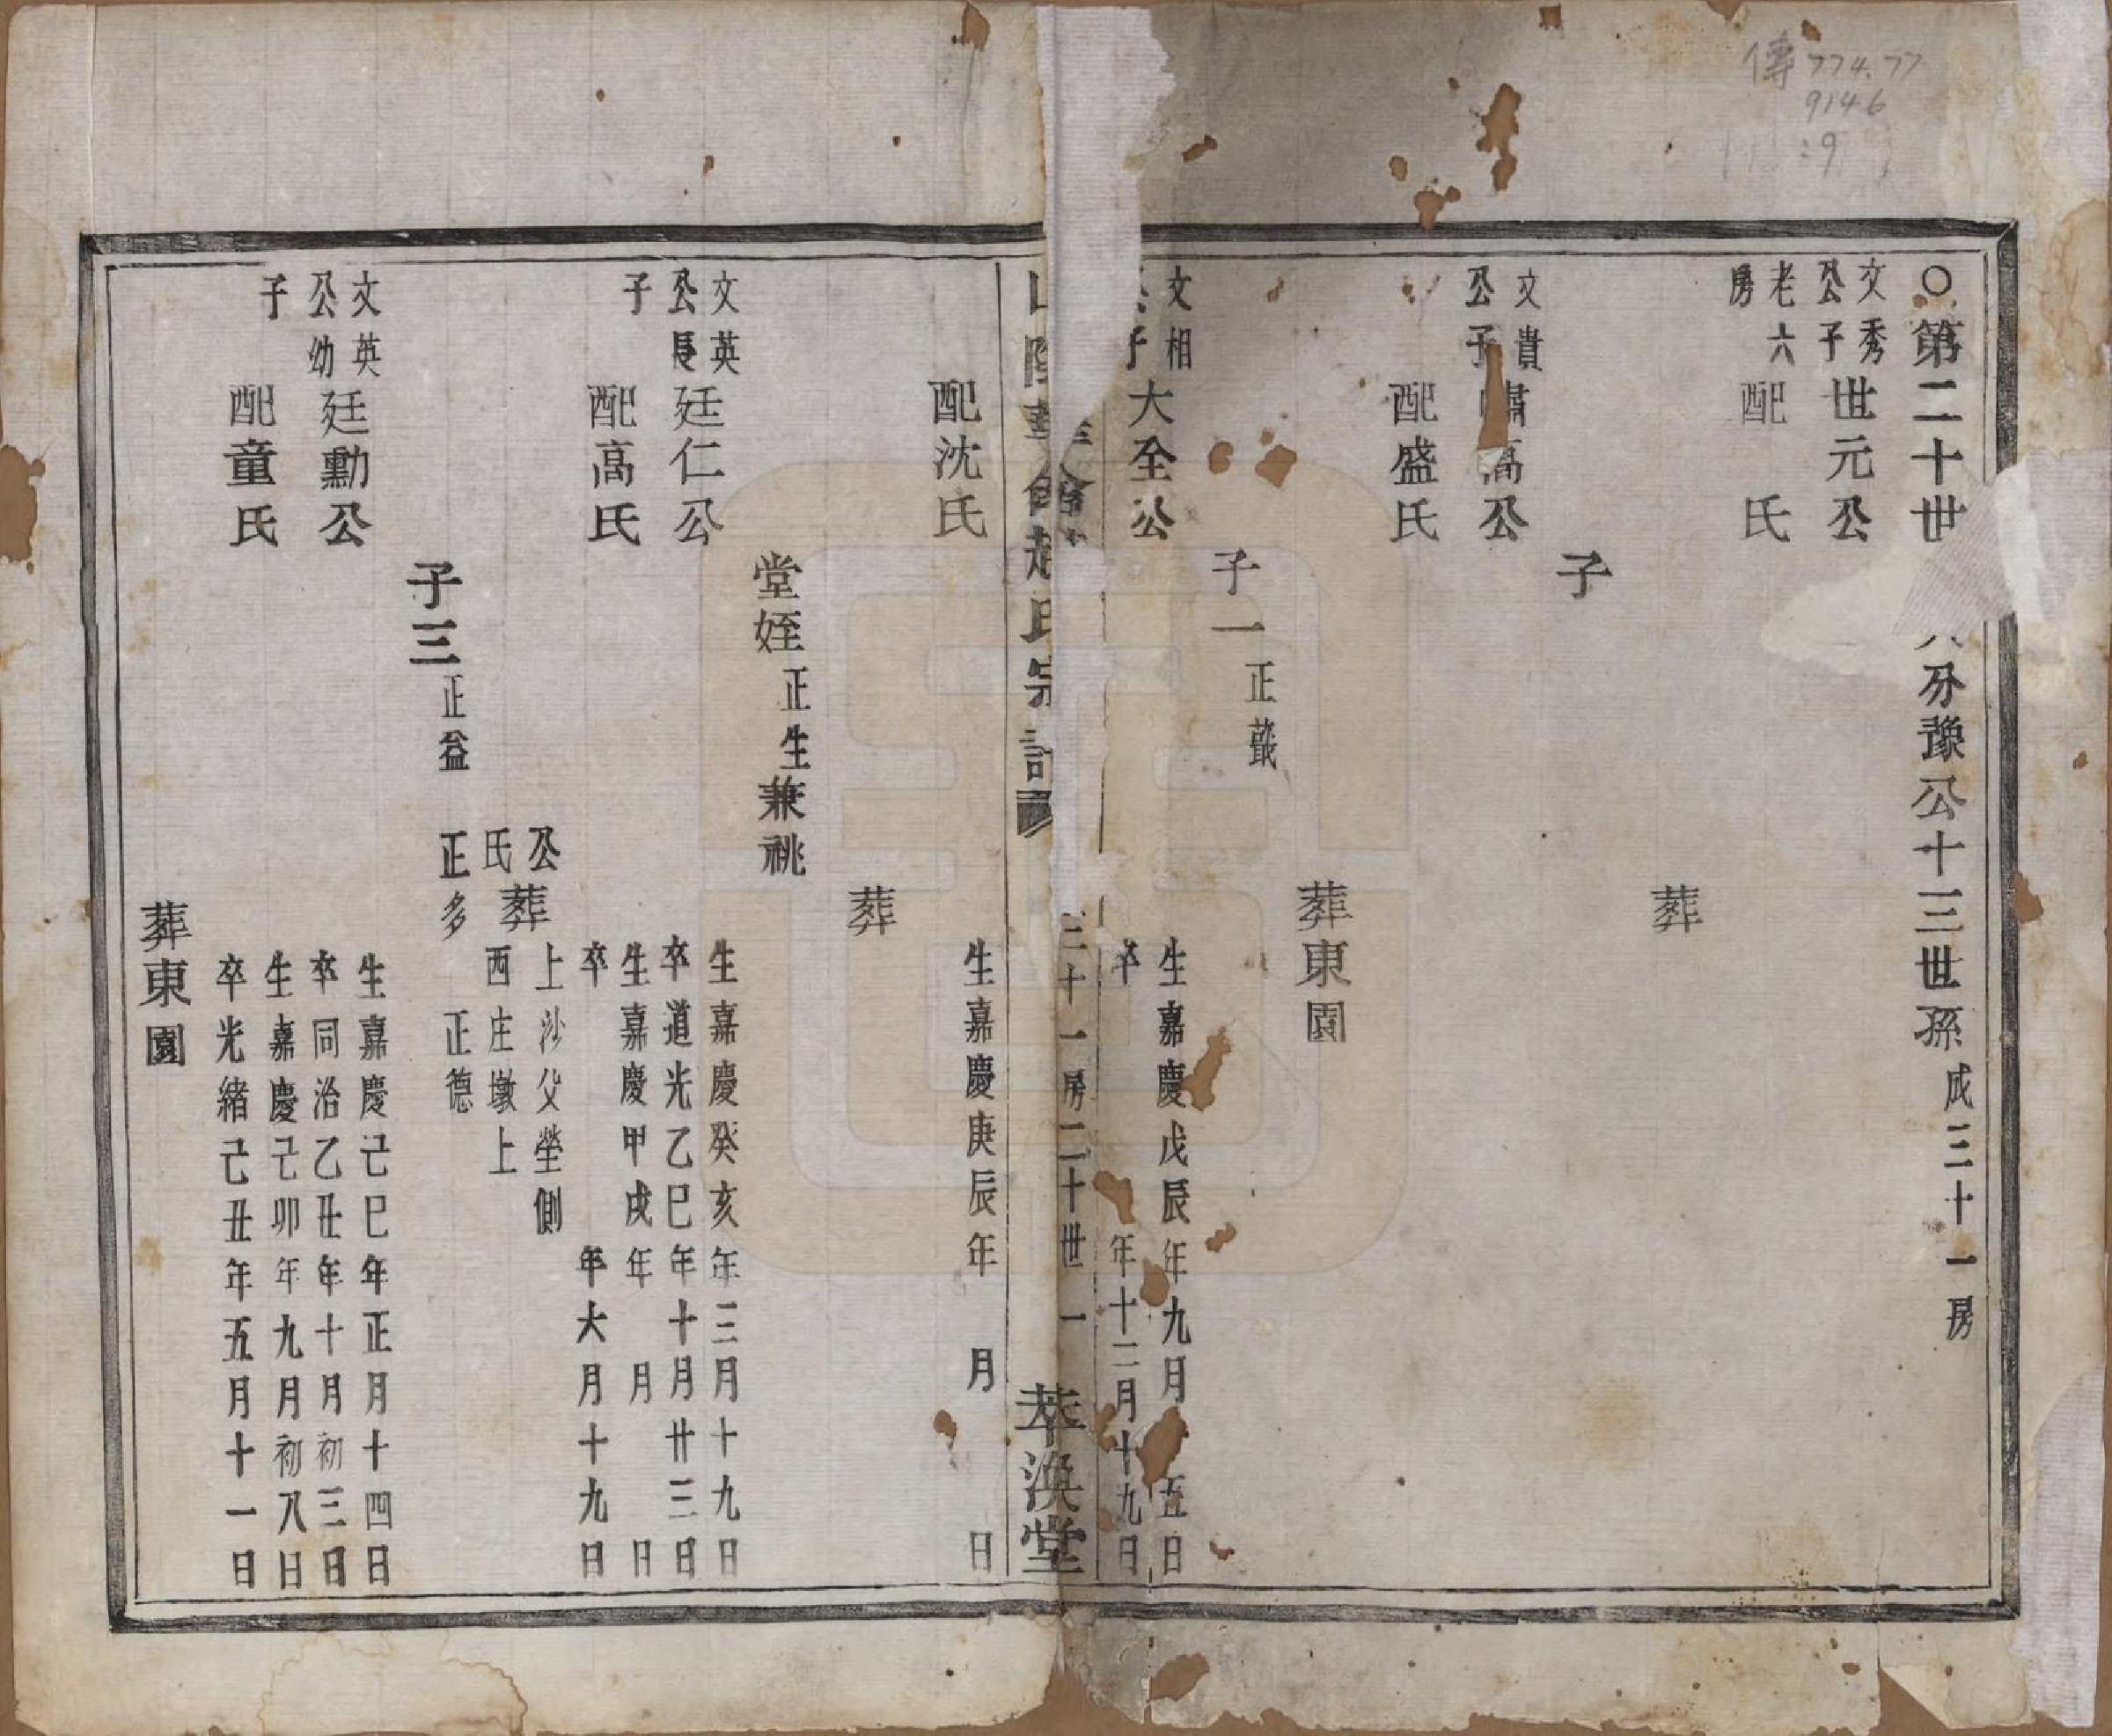 傳 774.77
9146
:9
○第二十世
分豫公十三世孫 成三十一房
文秀公子 世元公
老六房 配 氏
葬
子
文貴公子 嘯高公
配盛氏
葬東園
子一 正蕺
文相公子 大全公
生嘉慶戊辰年九月 五日
卒 年十二月十九日
趙氏宗譜
三十一房二十世 一
萃渙堂
配沈氏
生嘉慶庚辰年 月 日
葬
堂姪正生兼祧
文英公長子 廷仁公
生嘉慶癸亥年三月十九日
卒道光乙巳年十月廿三日
配高氏
生嘉慶甲戌年 月 日
卒 年大月十九日
公氏葬
上沙父塋側
西庄墩上
子三 正益 正多 正德
文英公幼子 廷勳公
生嘉慶己巳年正月十四日
卒同治乙丑年十月初三日
配童氏
生嘉慶己卯年九月初八日
卒光緒己丑年五月十一日
葬東園